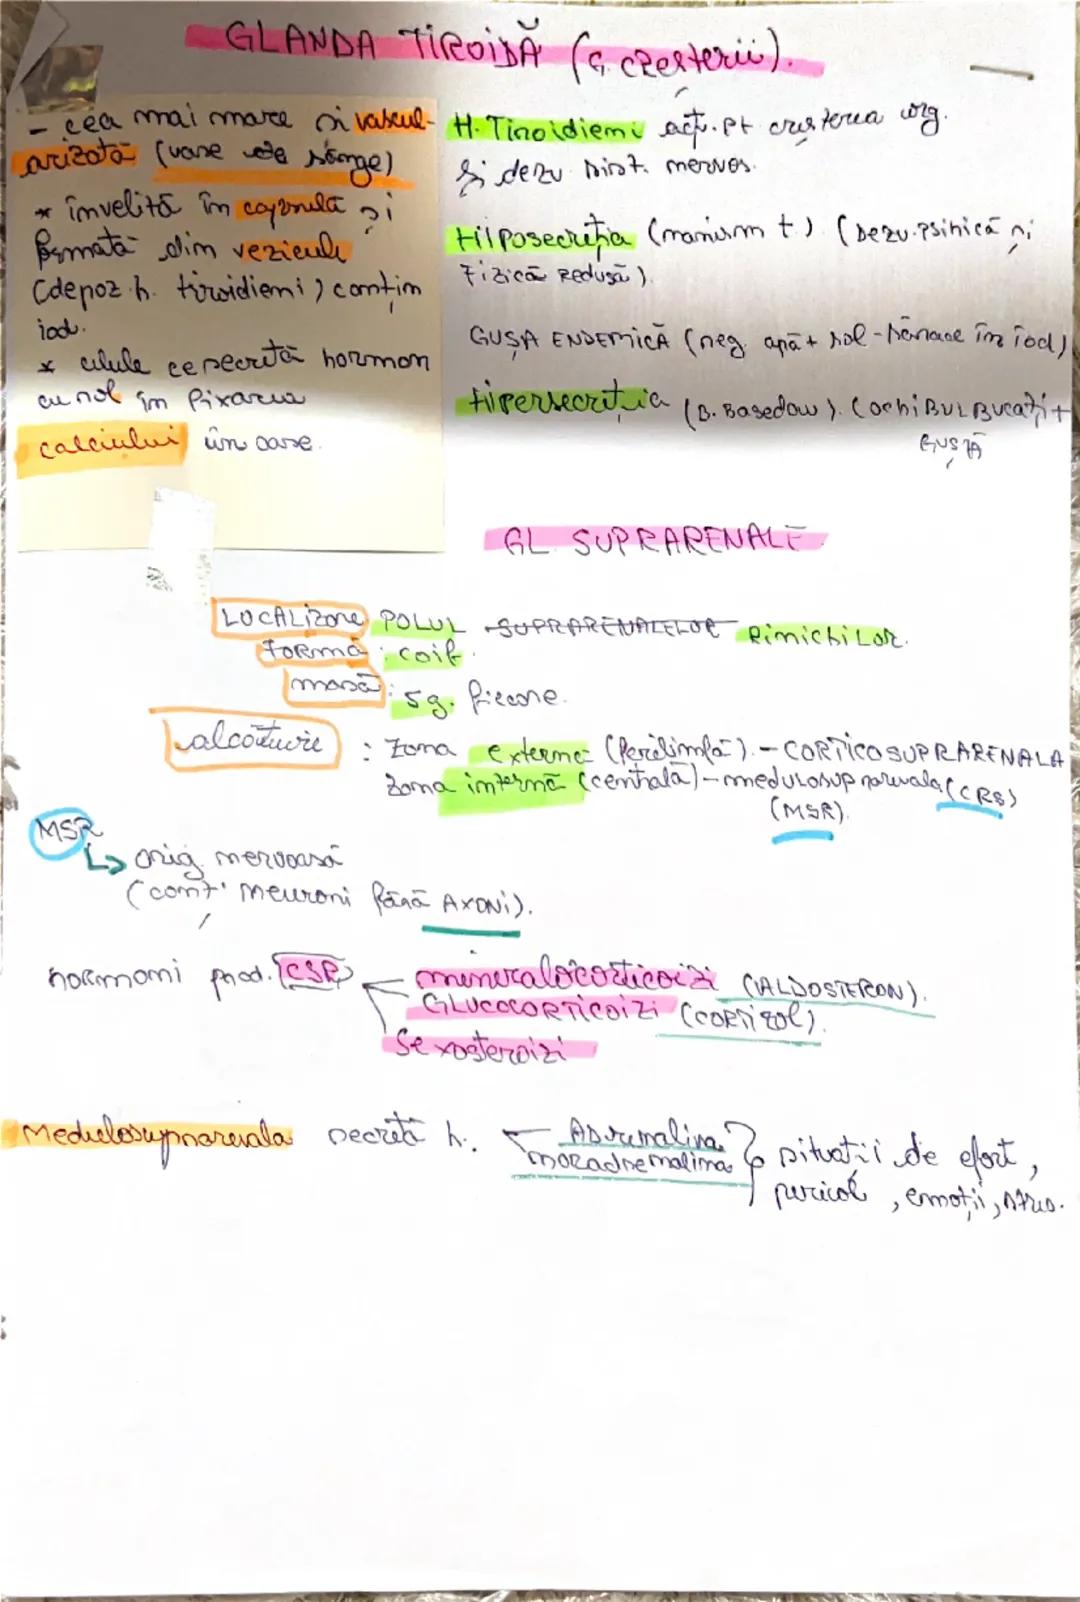 GLANDA TIROIDĂ (G. CREșterii).
- cea mai mare și vascul-
arizată (vase de sânge)
* învelită în capsulă și
formată din vezicule
(depoz. h. tiroidieni) conțin
iod.
* celule ce secretă hormon
cu rol în fixarea
calciului în oase.
H. Tiroidieni acț. pt creșterea org.
și dezv. sist. nervos.
Hiposecreția (nanism t.). (Dezv. psihică și
Fizică Redusă).
GUȘA ENDEMICĂ (neg. apă + sol - sărace în iod)
Hipersecreția (B. Basedow). (ochi BULBUcați +
GUȘĂ
GL. SUPRARENALE
LOCALizare POLUL SUPRARENALELOR RinichiLOR.
Formă: coif.
masă: 5g. fiecare.
alcătuire : Zona externă (Periferică) - CORTICOSUPRARENALA
zona internă (centrală) - medulosuprarenala (CRS)
(MSR).
MSR
↳ orig. nervoasă
(conț. neuroni fără AXONi).
hormoni prod. CSR
mineralocorticoizi (ALDOSTERON).
GLUCOCORTICOIZI (CORTIZOL).
Sexosteroizi
Medulosuprarenala secretă h.:
Adrenalina
noradrenalina
situații de efort,
pericol, emoții, stres.